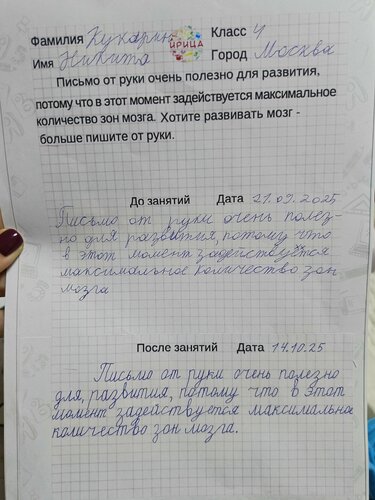 Фамилия Кукарин Класс 4
ИРИЦА
Имя Никита Город Москва
Письмо от руки очень полезно для развития,
потому что в этот момент задействуется максимальное
количество зон мозга. Хотите развивать мозг -
больше пишите от руки.
До занятий Дата 21.09.2025
Письмо от руки очень полез-
но для развития, потому что
в этот момент задействуется
максимальное количество зон
мозга
После занятий Дата 14.10.25
Письмо от руки очень полезно
для, развития, потому что в этот
момент задействуется максимальное
количество зон мозга.